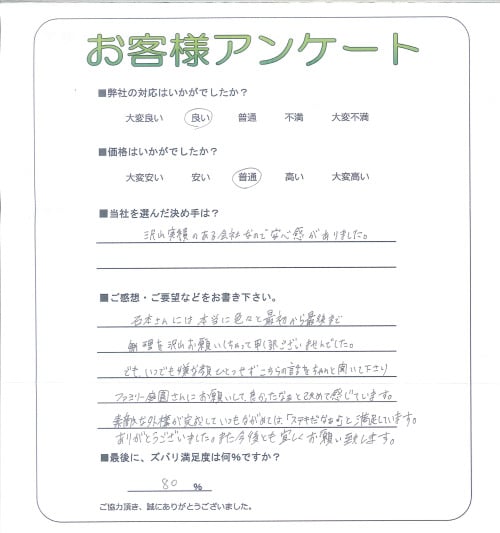 お客様アンケート
■弊社の対応はいかがでしたか？
大変良い 良い 普通 不満 大変不満
■価格はいかがでしたか？
大変安い 安い 普通 高い 大変高い
■当社を選んだ決め手は？
沢山実績のある会社なので安心感がありました。
■ご感想・ご要望などをお書き下さい。
さんには本当に色々と最初から最後まで
無理を沢山お願いしちゃって申し訳ございませんでした。
でも、いつでも嫌な顔ひとつせずこちらの話をちゃんと聞いて下さり
ファミリー庭園さんにお願いして良かったなぁと改めて感じています。
素敵な外構が完成していつもながめては、「ステキだなぁ」と満足しています。
ありがとうございました。また今後とも宜しくお願い致します。
■最後に、ズバリ満足度は何%ですか？
80 %
ご協力頂き、誠にありがとうございました。